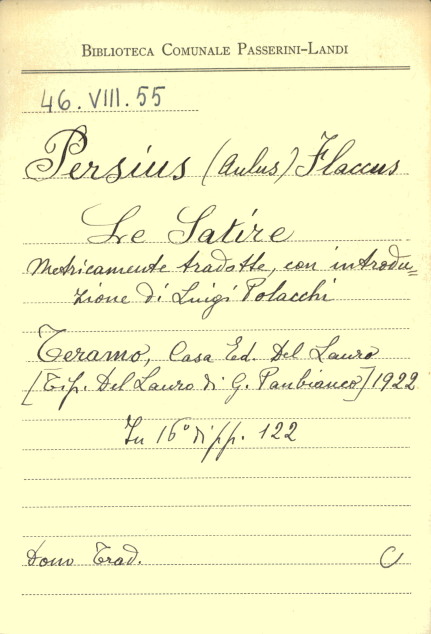 BIBLIOTECA COMUNALE PASSERINI-LANDI
46.VIII.55
Persius (Aulus) Flaccus
Le Satire
Metricamente tradotte, con introdu=
zione di Luigi Polacchi
Teramo, Casa Ed. Del Lauro
[Tip. Del Lauro di G. Panbianco] 1922
In 16° di pp. 122
Dono Trad.
C